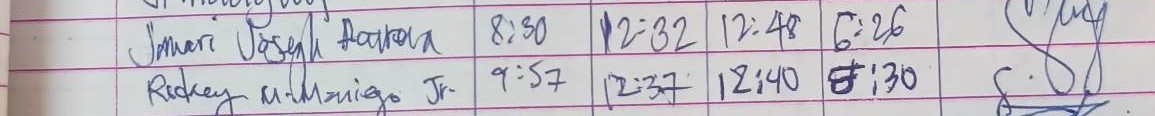 Jmari Joseph 8:30 12:32 12:48 6:26
Rodney M. Maniego Jr. 9:57 12:37 12:40 :30